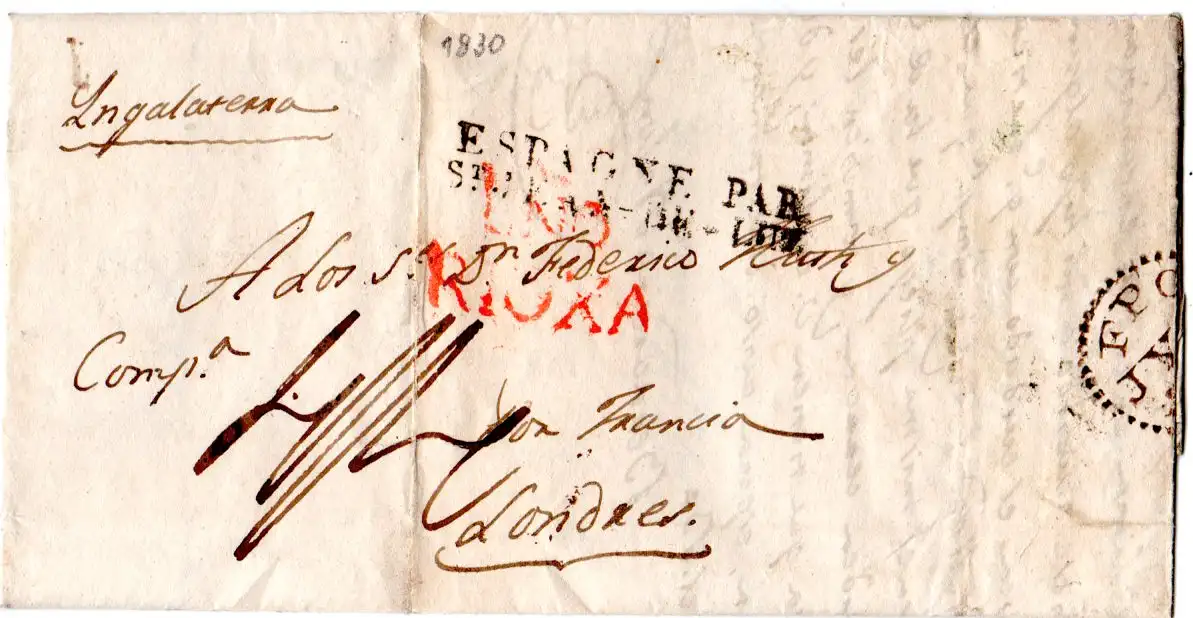 1830
Ingalaterra
ESPAGNE PAR
ST. JEAN-DE-LUZ
RIOXA
A los S.es Dn Federico Huth y
Comp.a
por Francia
Londres.
FPO
JA